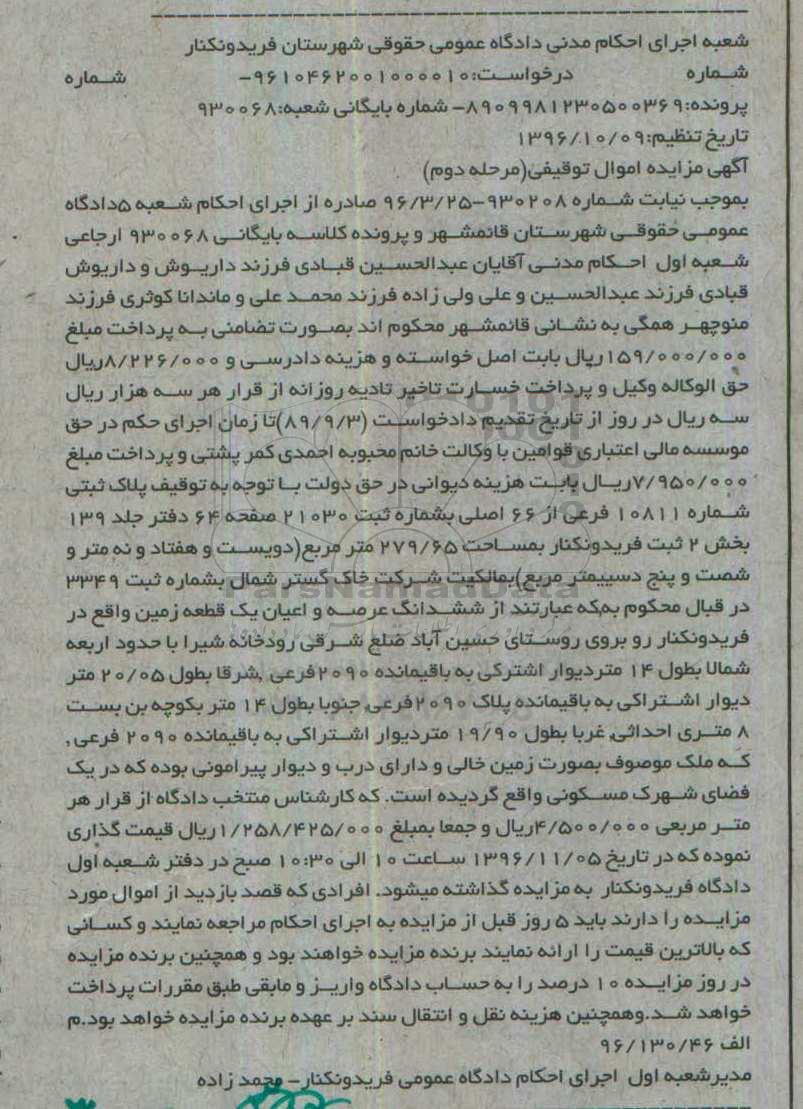 شعبه اجرای احکام مدنی دادگاه عمومی حقوقی شهرستان فریدونکنار
شماره درخواست:۹۶۱۰۴۶۲۰۰۱۰۰۰۰۱۰- شماره
پرونده:۸۹۰۹۹۸۱۲۳۰۵۰۰۳۶۹- شماره بایگانی شعبه:۹۳۰۰۶۸
تاریخ تنظیم:۱۳۹۶/۱۰/۰۹
آگهی مزایده اموال توقیفی(مرحله دوم)
بموجب نیابت شماره ۹۳۰۲۰۸-۹۶/۳/۲۵ صادره از اجرای احکام شعبه ۵دادگاه
عمومی حقوقی شهرستان قائمشهر و پرونده کلاسه بایگانی ۹۳۰۰۶۸ ارجاعی
شعبه اول احکام مدنی آقایان عبدالحسین قبادی فرزند داریوش و داریوش
قبادی فرزند عبدالحسین و علی ولی زاده فرزند محمد علی و ماندانا کوثری فرزند
منوچهر همگی به نشانی قائمشهر محکوم اند بصورت تضامنی به پرداخت مبلغ
۱۵۹/۰۰۰/۰۰۰ریال بابت اصل خواسته و هزینه دادرسی و ۸/۲۲۶/۰۰۰ریال
حق الوکاله وکیل و پرداخت خسارت تاخیر تادیه روزانه از قرار هر سه هزار ریال
سه ریال در روز از تاریخ تقدیم دادخواست (۸۹/۹/۳)تا زمان اجرای حکم در حق
موسسه مالی اعتباری قوامین با وکالت خانم محبوبه احمدی کمر پشتی و پرداخت مبلغ
۷/۹۵۰/۰۰۰ریال بابت هزینه دیوانی در حق دولت با توجه به توقیف پلاک ثبتی
شماره ۱۰۸۱۱ فرعی از ۶۶ اصلی بشماره ثبت ۲۱۰۳۰ صفحه ۶۴ دفتر جلد ۱۳۹
بخش ۲ ثبت فریدونکنار بمساحت ۲۷۹/۶۵ متر مربع(دویست و هفتاد و نه متر و
شصت و پنج دسیمتر مربع)بمالکیت شرکت خاک گستر شمال بشماره ثبت ۳۳۴۹
در قبال محکوم به،که عبارتند از ششدانگ عرصه و اعیان یک قطعه زمین واقع در
فریدونکنار رو بروی روستای حسین آباد ضلع شرقی رودخانه شیرا با حدود اربعه
شمالا بطول ۱۴ متردیوار اشترکی به باقیمانده ۲۰۹۰فرعی ,شرقا بطول ۲۰/۰۵ متر
دیوار اشتراکی به باقیمانده پلاک ۲۰۹۰فرعی, جنوبا بطول ۱۴ متر بکوچه بن بست
۸ متری احداثی, غربا بطول ۱۹/۹۰ متردیوار اشتراکی به باقیمانده ۲۰۹۰ فرعی ,
که ملک موصوف بصورت زمین خالی و دارای درب و دیوار پیرامونی بوده که در یک
فضای شهرک مسکونی واقع گردیده است. که کارشناس منتخب دادگاه از قرار هر
متر مربعی ۴/۵۰۰/۰۰۰ریال و جمعا بمبلغ ۱/۲۵۸/۴۲۵/۰۰۰ریال قیمت گذاری
نموده که در تاریخ ۱۳۹۶/۱۱/۰۵ ساعت ۱۰ الی ۱۰:۳۰ صبح در دفتر شعبه اول
دادگاه فریدونکنار به مزایده گذاشته میشود. افرادی که قصد بازدید از اموال مورد
مزایده را دارند باید ۵ روز قبل از مزایده به اجرای احکام مراجعه نمایند و کسانی
که بالاترین قیمت را ارائه نمایند برنده مزایده خواهند بود و همچنین برنده مزایده
در روز مزایده ۱۰ درصد را به حساب دادگاه واریز و مابقی طبق مقررات پرداخت
خواهد شد.وهمچنین هزینه نقل و انتقال سند بر عهده برنده مزایده خواهد بود.م
الف ۹۶/۱۳۰/۴۶
مدیرشعبه اول اجرای احکام دادگاه عمومی فریدونکنار- محمد زاده
ParsNamadData